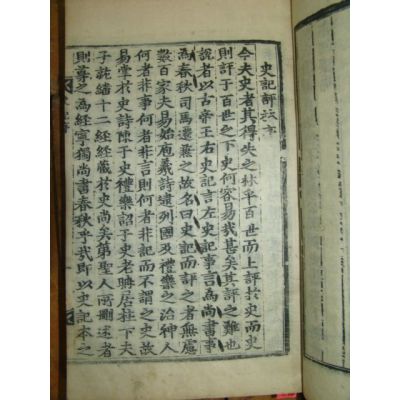 史記評林序
今夫史者其得失之林乎百世而上評於史而史
則評于百世之下史何容易哉甚矣其評之難也
說者以古帝王右史記言左史記事言為尚書事
為春秋司馬遷兼之故名曰史記而評之者無慮
數百家夫易始庖羲詩逮列國及禮樂之治神人
何者非事何者非言則何者非記而不謂之史故
易掌於史詩陳于史禮樂詔于史老聃居柱下夫
子託繙十二經經藏於史尚矣第聖人所刪述者
則尊之為經寧獨尚書春秋乎哉即以史記本之